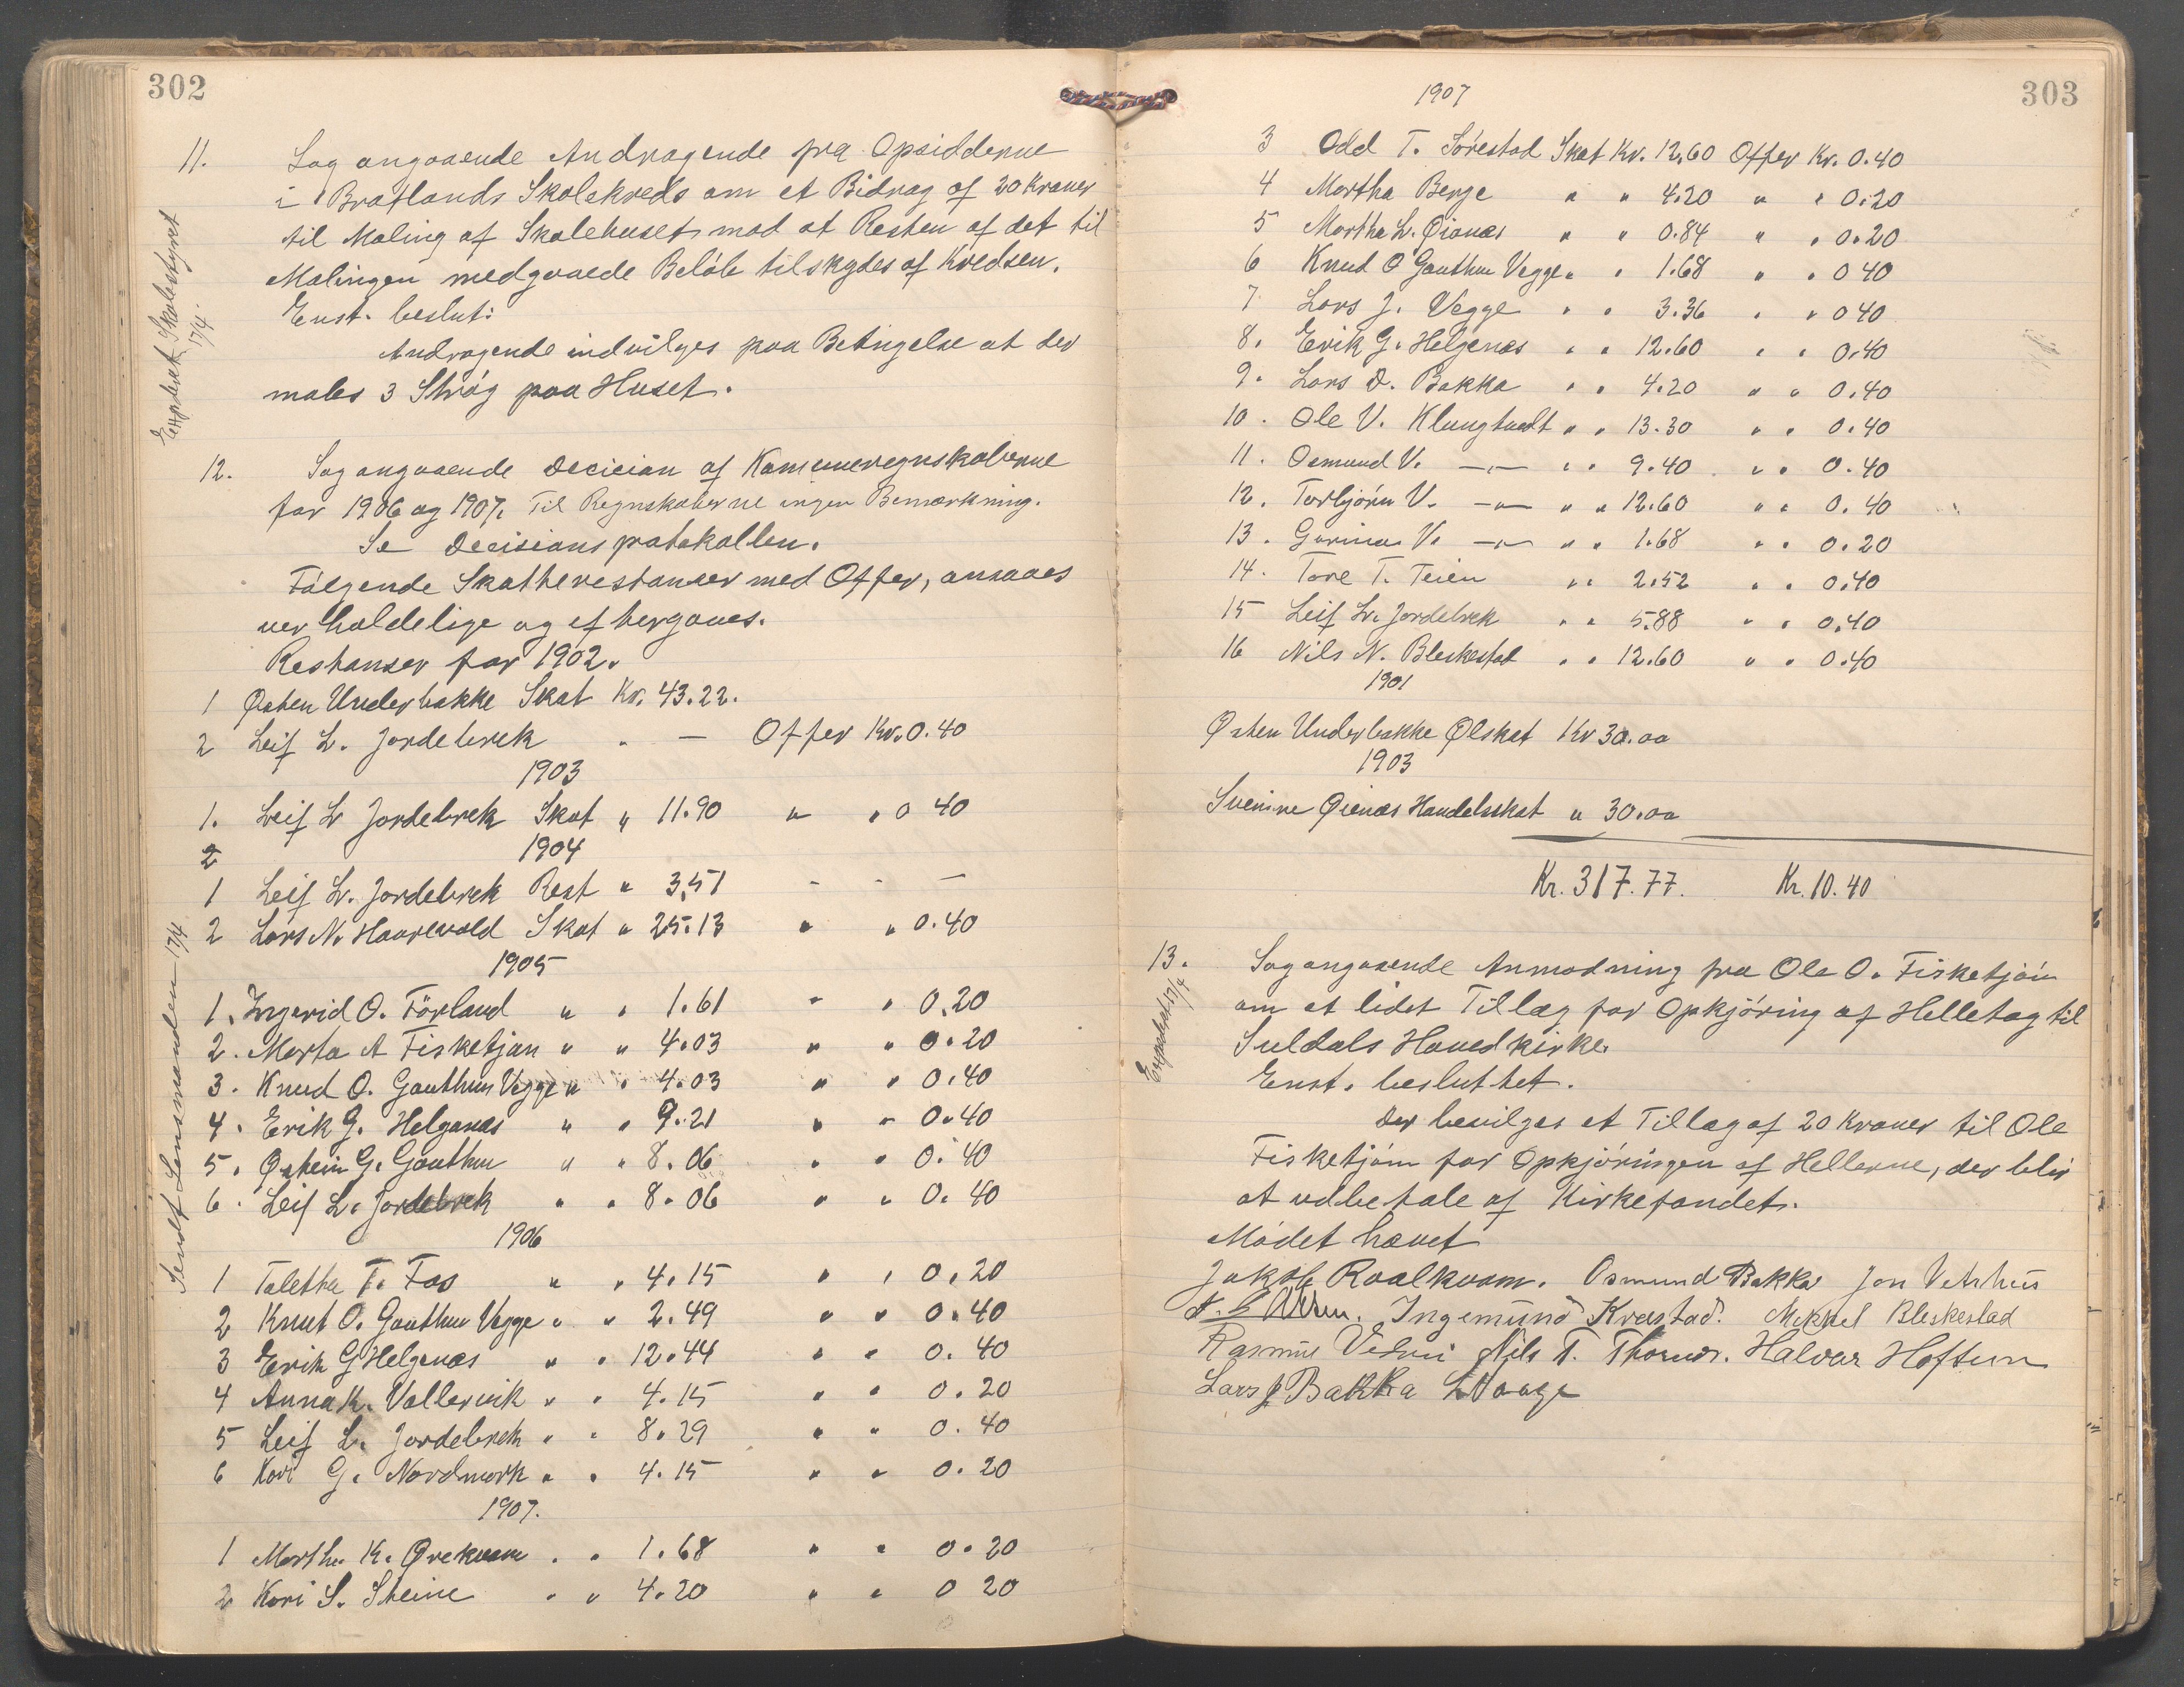 302
11. Sag angaaende Andragende fra Opsidderne
i Bratlands Skolekreds om et Bidrag af 20 Kroner
til Maling af Skolehuset, mod at Resten af det til
Malingen medgaaede Beløb tilskydes af Kredsen.
Enst. beslut:
Andragende indvilges paa Betingelse at der
males 3 Strøg paa Huset.
Expedert Skolestyret 17/4.
12. Sag angaaende Decision af Kommuneregnskaberne
for 1906 og 1907. Til Regnskaberne ingen Bemærkning.
Se Decisionsprotokollen.
Følgende Skatterestanser med Offer, ansaaes
uerholdelige og eftergaves.
Restanser for 1902.
1 Østen Underbakke Skat Kr. 43.22.
2 Leif L. Jordebrek " — Offer Kr. 0.40
1903
1. Leif L Jordebrek Skat " 11.90 " " 0 40
2 1904
1 Leif L. Jordebrek Rest " 3,51 - - —
2 Lars N. Haarevold Skat " 25.13 " " 0.40
1905
1. Ingerid O. Förland " " 1.61 " " 0.20
2. Marta A Fisketjøn " " 4.03 " " 0.20
3. Knud O. Gauthun Vegge " " 4.03 " " 0.40
4. Erik G. Helganæs " " 9.21 " " 0.40
5. Østein G. Gauthun " " 8.06 " " 0.40
6. Leif L. Jordebrek " " 8.06 " " 0.40
1906
1 Taletha T. Fos " " 4.15 " " 0.20
2 Knut O. Gauthun Vegge " " 2.49 " " 0.40
3 Erik G Helgenæs " " 12.44 " " 0.40
4 Anna K. Vallervik " " 4.15 " " 0.20
5 Leif L. Jordebrek " " 8.29 " " 0.40
6 Kari G. Nordmork " " 4.15 " " 0.20
1907.
1 Martha K. Ørekvam " " 1.68 " " 0.20
2 Kari S. Steine " " 4.20 " " 0 20
Sendt Lensmanden 17/4
303
1907
3 Odd T. Sørestad Skat Kr. 12.60 Offer Kr. 0.40
4 Martha Berge " " 4.20 " " 0.20
5 Martha L. Øienæs " " 0.84 " " 0.20
6 Knud O Gauthun Vegge " " 1.68 " " 0 40
7 Lars J. Vegge " " 3.36 " " 0 40
8. Erik G. Helgenæs " " 12.60 " " 0.40
9. Lars D. Bakka " " 4.20 " " 0.40
10. Ole V. Klungtvedt " " 13.30 " " 0.40
11. Osmund V. —"— " " 9.40 " " 0.40
12. Torbjørn V. —"— " " 12.60 " " 0.40
13. Gurina V. —"— " " 1.68 " " 0.20
14. Tore T. Teien " " 2.52 " " 0.40
15 Leif L. Jordebrek " " 5.88 " " 0.40
16 Nils N. Bleskestad " " 12.60 " " 0.40
1901
Østen Underbakke Ølskat Kr 30.00
1903
Øienæs Handelsskat " 30.00
Kr. 317.77. Kr. 10.40
13. Sag angaaende Anmodning fra Ole O. Fisketjøn
om et lidet Tillæg for Opkjøring af Helletag til
Suldals Hovedkirke.
Enst. besluttet.
Der bevilges et Tillæg af 20 Kroner til Ole
Fisketjøn for Opkjøringen af Hellerne, der blir
at udbetale af Kirkefondet.
Mødet hævet
Expedert 17/4
Jakob Roalkvam. Osmund Bakka Jon Vetrhus
Ingemund Krastad. Mikkel Bleskestad
Rasmus Nils T. Halvar Hoftun
Lars J Bakka L Vaage